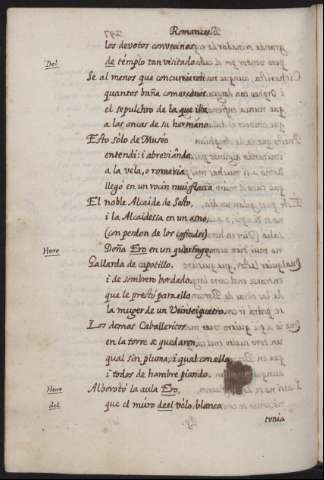 Romances.
los devotos convecinos
Del de templo tan visitado
Se al menos que concurrieron
quantos baña comarcanos
el sepulchro de la que iba
a las ancas de su hermano
Esto sólo de Museo
entendi: i abreviando,
a la vela, o romeria
llegó en un rocin mui flaco
El noble Alcaide de Sesto,
i la Alcaidessa en un asno,
(con perdon de los cofrades)
Hero Doña Ero en un quartago.
Gallarda de capotillo,
i de sombrero bordado,
que le prestó para ello
la muger de un Veintequatro.
Los demas Caballeritos
en la torre se quedaron,
qual sin pluma, i qual con ella,
i todos de hambre piando.
Hero Alborotó la aula Ero,
del que el muro del velo blanco
tenia